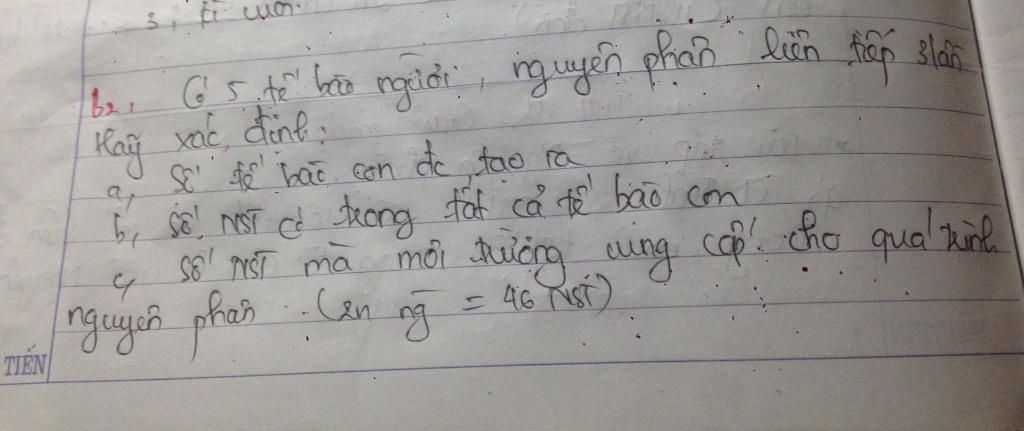 3, Tỉ
b2, Có 5 tế bào người, nguyên phân liên tiếp 3 lần
Hãy xác định:
a, Số tế bào con đc tạo ra
b, Số NST có trong tất cả tế bào con
c, Số NST mà môi trường cung cấp cho quá trình
nguyên phân. (2n ng = 46 NST)
TIẾN